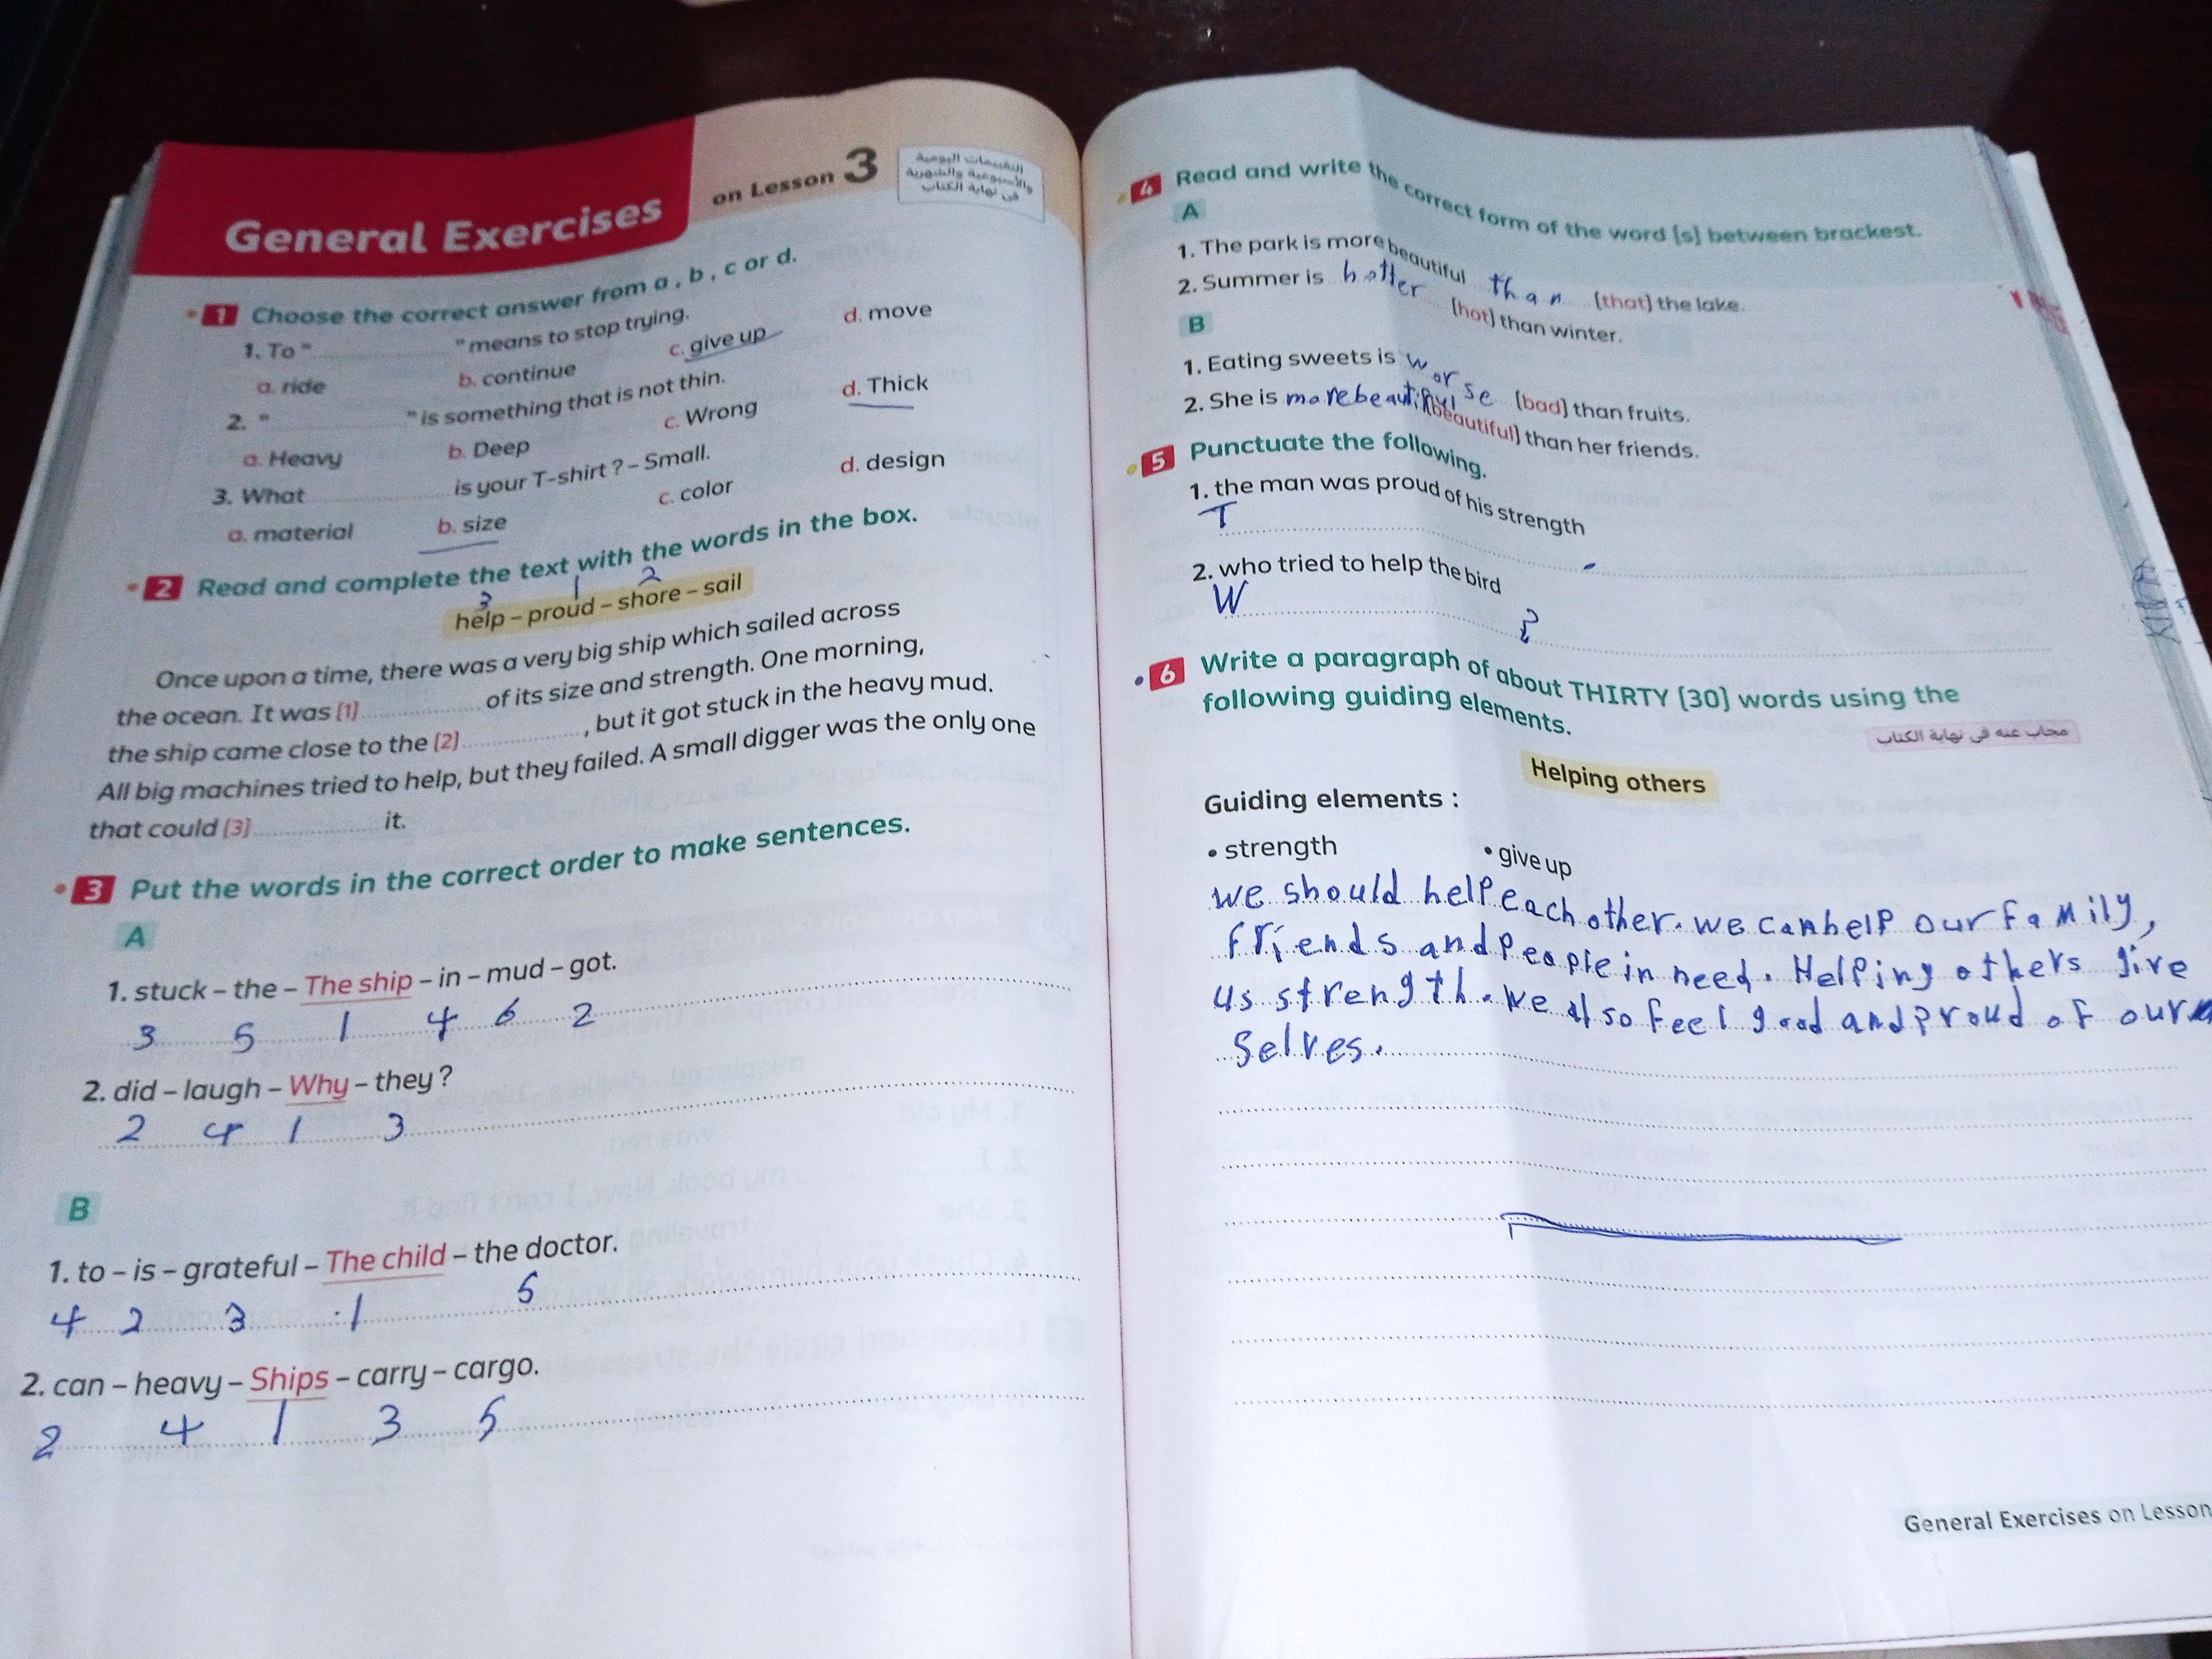 General Exercises
on Lesson 3
التقييمات اليومية
والأسبوعية والشهرية
فى نهاية الكتاب
1 Choose the correct answer from a , b , c or d.
1. To " ............ " means to stop trying.
a. ride b. continue c. give up d. move
2. " ............ " is something that is not thin.
a. Heavy b. Deep c. Wrong d. Thick
3. What ............ is your T-shirt ? – Small.
a. material b. size c. color d. design
2 Read and complete the text with the words in the box.
3 1 2
help – proud – shore – sail
Once upon a time, there was a very big ship which sailed across
the ocean. It was (1) ............ of its size and strength. One morning,
the ship came close to the (2) ............ , but it got stuck in the heavy mud.
All big machines tried to help, but they failed. A small digger was the only one
that could (3) ............ it.
3 Put the words in the correct order to make sentences.
A
1. stuck – the – The ship – in – mud – got.
3 5 1 4 6 2
2. did – laugh – Why – they ?
2 4 1 3
B
1. to – is – grateful – The child – the doctor.
4 2 3 1 5
2. can – heavy – Ships – carry – cargo.
2 4 1 3 5
4 Read and write the correct form of the word (s) between brackest.
A
1. The park is more beautiful than (that) the lake.
2. Summer is hotter (hot) than winter.
B
1. Eating sweets is worse (bad) than fruits.
2. She is more beautiful (beautiful) than her friends.
5 Punctuate the following.
1. the man was proud of his strength
T .
2. who tried to help the bird
W ?
6 Write a paragraph of about THIRTY (30) words using the
following guiding elements.
مجاب عنه فى نهاية الكتاب
Helping others
Guiding elements :
• strength • give up
we should help each other. we can help our family,
friends and people in need. Helping others give
us strength. we also feel good and proud of our
selves.
General Exercises on Lesson